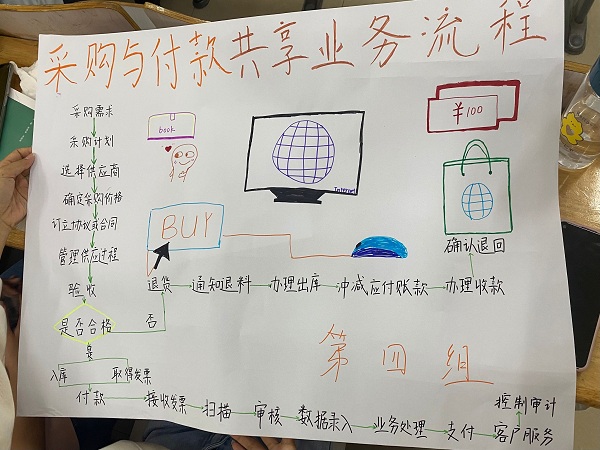 采购与付款共享业务流程
采购需求
采购计划
选择供应商
确定采购价格
订立协议或合同
管理供应过程
验收
是否合格
否
是
入库 取得发票
付款 接收发票 扫描 审核 数据录入 业务处理 支付 客户服务
控制审计
退货 通知退料 办理出库 冲减应付账款 办理收款
确认退回
book
BUY
Internet
¥100
第四组